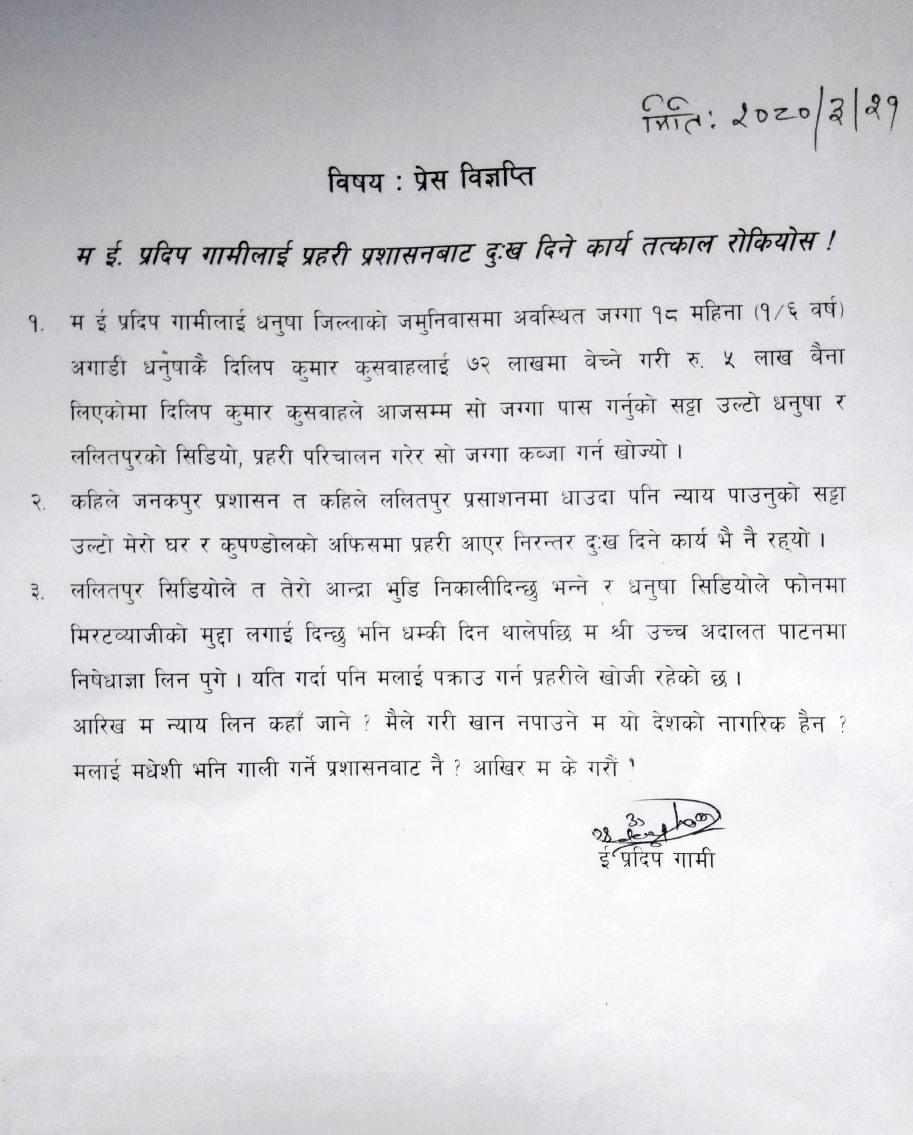 मिति: २०८०/३/२१
विषय : प्रेस विज्ञप्ति
म ई. प्रदिप गामीलाई प्रहरी प्रशासनबाट दुःख दिने कार्य तत्काल रोकियोस !
१. म ई प्रदिप गामीलाई धनुषा जिल्लाको जमुनिवासमा अवस्थित जग्गा १८ महिना (१/६ वर्ष)
अगाडी धनुषाकै दिलिप कुमार कुसवाहलाई ७२ लाखमा बेच्ने गरी रु. ५ लाख बैना
लिएकोमा दिलिप कुमार कुसवाहले आजसम्म सो जग्गा पास गर्नुको सट्टा उल्टो धनुषा र
ललितपुरको सिडियो, प्रहरी परिचालन गरेर सो जग्गा कब्जा गर्न खोज्यो ।
२. कहिले जनकपुर प्रशासन त कहिले ललितपुर प्रसाशनमा धाउदा पनि न्याय पाउनुको सट्टा
उल्टो मेरो घर र कुपण्डोलको अफिसमा प्रहरी आएर निरन्तर दुःख दिने कार्य भै नै रह्यो ।
३. ललितपुर सिडियोले त तेरो आन्द्रा भुडि निकालीदिन्छु भन्ने र धनुषा सिडियोले फोनमा
मिरटव्याजीको मुद्दा लगाई दिन्छु भनि धम्की दिन थालेपछि म श्री उच्च अदालत पाटनमा
निषेधाज्ञा लिन पुगे । यति गर्दा पनि मलाई पक्राउ गर्न प्रहरीले खोजी रहेको छ ।
आरिख म न्याय लिन कहाँ जाने ? मैले गरी खान नपाउने म यो देशको नागरिक हैन ?
मलाई मधेशी भनि गाली गर्ने प्रशासनवाट नै ? आखिर म के गरौं
ई प्रदिप गामी